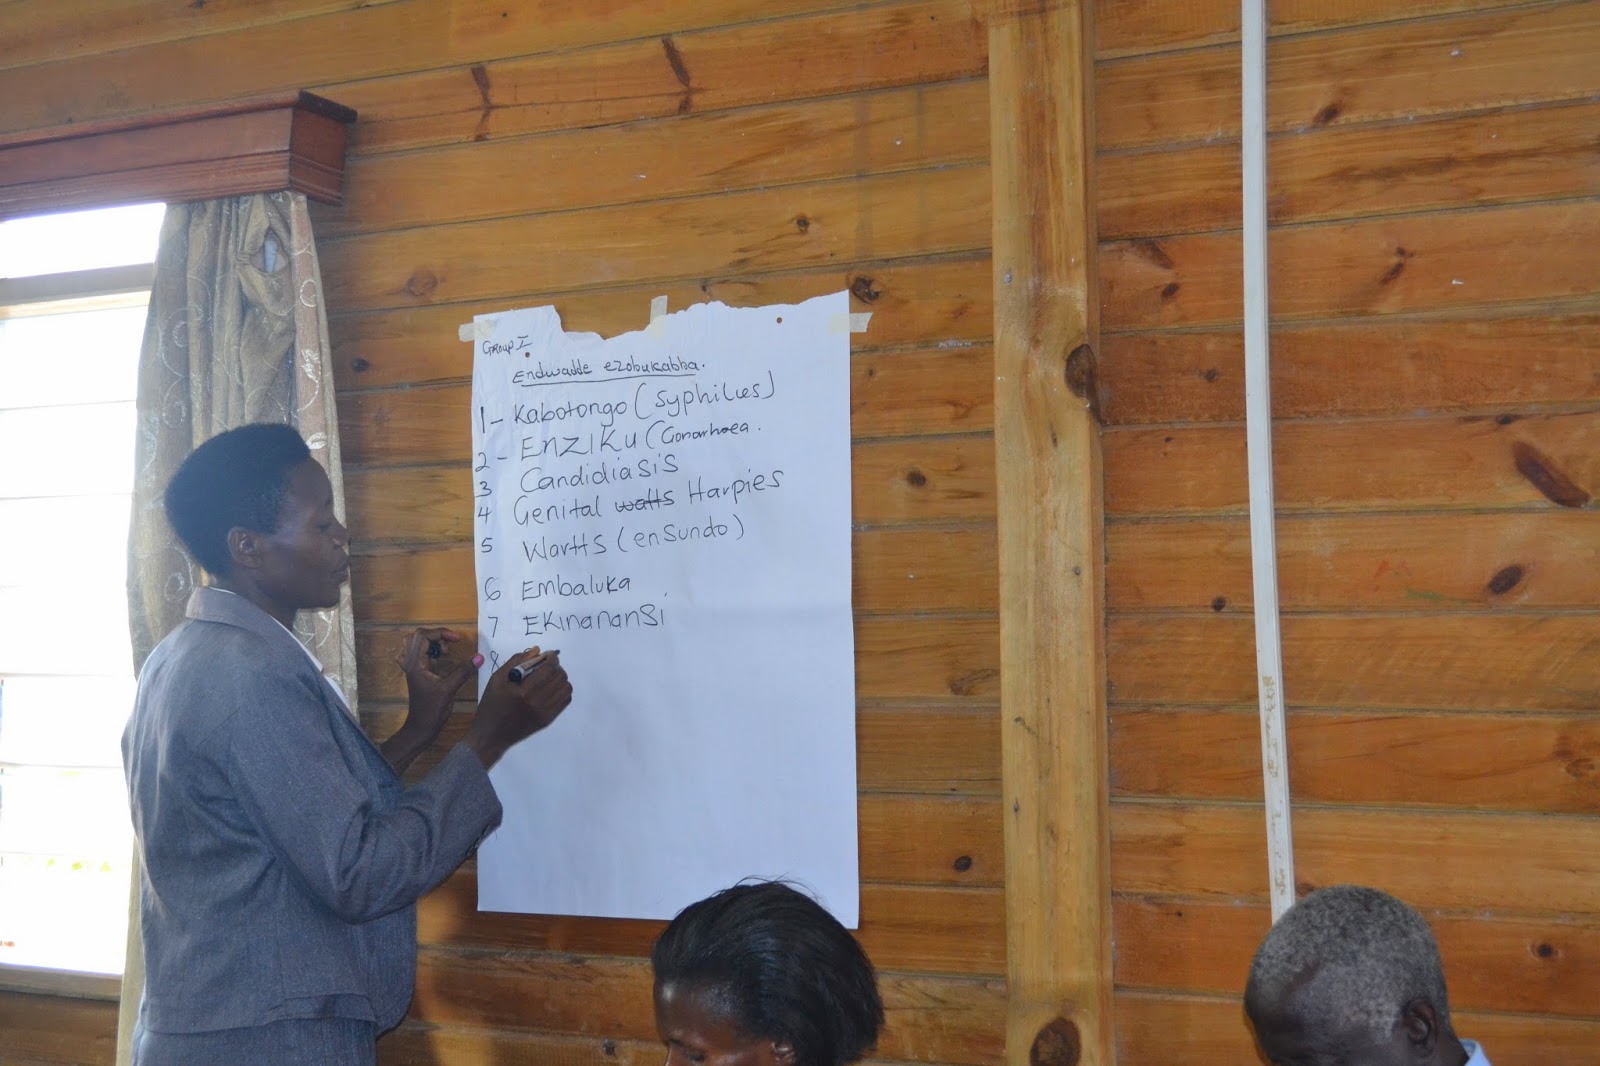 Group I
Endwadde ezobukabba.
1 - Kabotongo (Syphilies)
2 - Enziku (Gonorhoea.
3 Candidiasis
4 Genital watts Harpies
5 Wartts (ensundo)
6 Embaluka
7 Ekinanansi
8